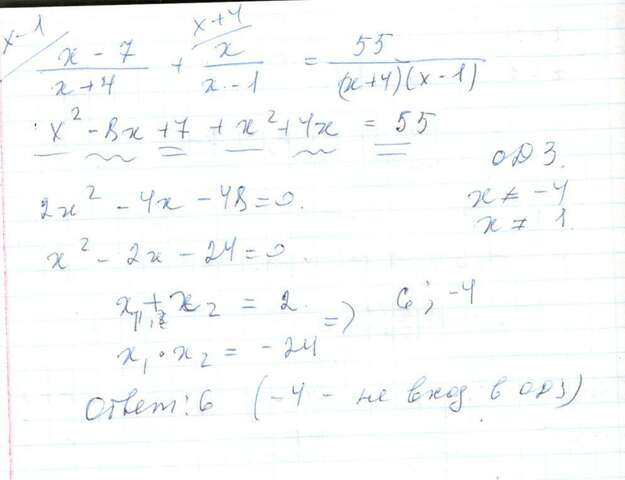 x-1 x+4
x - 7 / x+4 + x / x - 1 = 55 / (x+4)(x-1)
x² - 8x + 7 + x² + 4x = 55
ОДЗ.
2x² - 4x - 48 = 0.
x ≠ -4
x ≠ 1.
x² - 2x - 24 = 0.
x₁ + x₂ = 2
=> 6; -4
x₁ · x₂ = -24
Ответ: 6 (-4 - не вход в ОДЗ)